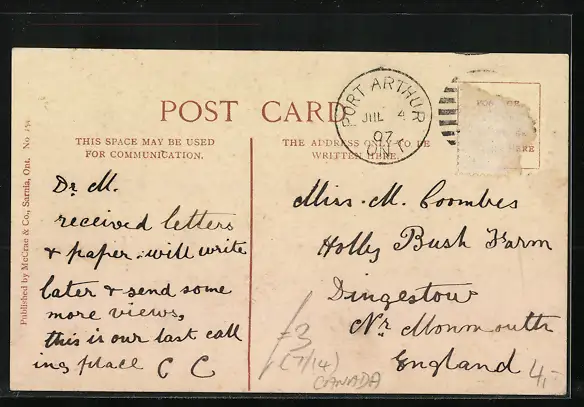 POST CARD
THIS SPACE MAY BE USED
FOR COMMUNICATION.
THE ADDRESS ONLY TO BE
WRITTEN HERE.
PORT ARTHUR
JUL 4
07
ONT
HERE
Published by McCrae & Co., Sarnia, Ont. No
Dr M.
received letters
& paper. will write
later & send some
more views,
this is our last call
ing place C C
Miss. M. Coombes
Holly Bush Farm
Dingestow
Nr Monmouth
England
£3
(7/14)
CANADA
4,-